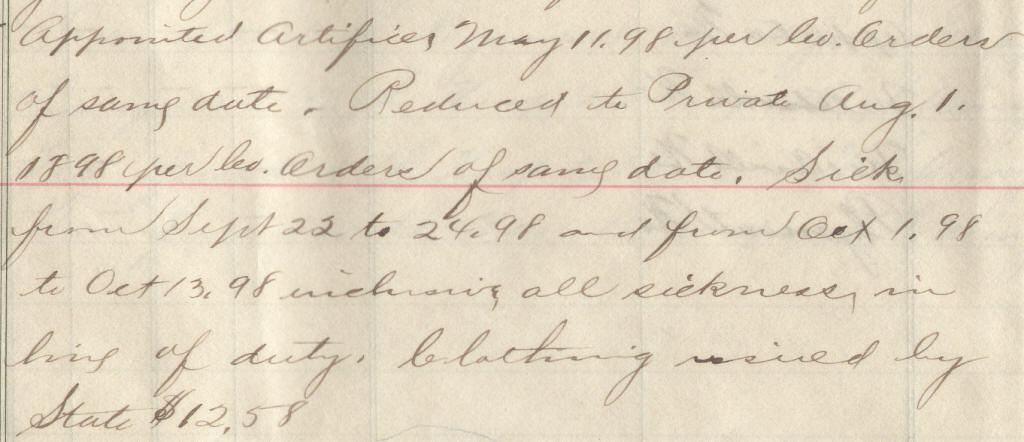 Appointed Artificer May 11. 98 per Co. Orders
of same date. Reduced to Private Aug. 1.
1898 per Co. Orders of same date. Sick
from Sept 22 to 24. 98 and from Oct 1. 98
to Oct 13. 98 inclusive, all sickness, in
line of duty. Clothing issued by
State $12.58